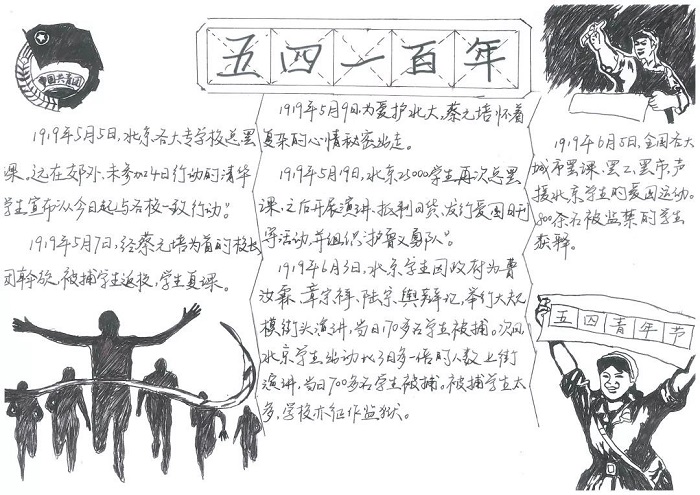 五四一百年
中国共青团
1919年5月5日,北京各大专学校总罢
课。远在郊外、未参加4日行动的清华
学生宣布“从今日起与各校一致行动”。
1919年5月7日,经蔡元培为首的校长
团斡旋,被捕学生返校,学生复课。
1919年5月9日为爱护北大,蔡元培怀着
复杂的心情秘密出走。
1919年5月19日,北京25000学生再次总罢
课,之后开展演讲、抵制日货、发行爱国日刊
等活动,并组织“护鲁义勇队”。
1919年6月3日,北京学生因政府为曹
汝霖、章宗祥、陆宗舆辩记,举行大规
模街头演讲,当日170多名学生被捕。次日
北京学生出动比3日多一倍的人数上街
演讲,当日700多名学生被捕。被捕学生太
多,学校亦征作监狱。
1919年6月5日,全国各大
城市罢课、罢工、罢市,声
援北京学生的爱国运动。
800余名被监禁的学生
获释。
五四青年节